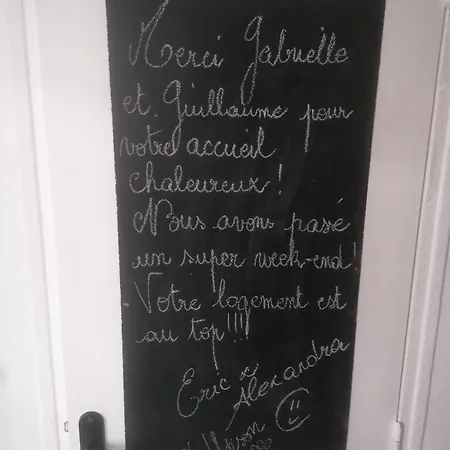 Merci Gabrielle
et Guillaume pour
votre accueil
chaleureux !
Nous avons passé
un super week-end !
Votre logement est
au top !!!
Eric &
Alexandra